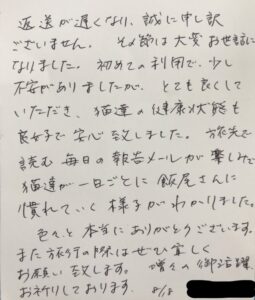 返送が遅くなり、誠に申し訳
ございません。その節は大変お世話に
なりました。初めての利用で、少し
不安がありましたが、とても良くして
いただき、猫達の健康状態も
良好で安心致しました。旅先で
読む毎日の報告メールが楽しみで
猫達が一日ごとに飯尾さんに
慣れていく様子がわかりました。
色々と本当にありがとうございます。
また旅行の際はぜひ宜しく
お願い致します。増々の御活躍
お祈りしております。 8/18